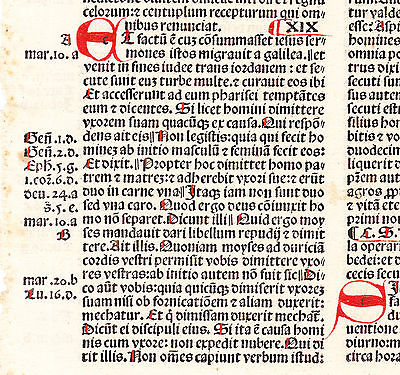 celorum: centuplum recepturum qui om
nibus renunciat. ¶ XIX
A
mar.10.a
ET factū ē cuȝ cōsummasset iesus ser
mones istos migrauit a galilea: et
venit in fines iudee trans iordanem: et se
cute sunt euȝ turbe multe: ⁊ curauit eos ibi
Et accesserunt ad eum pharisei temptātes
eum ⁊ dicentes. Si licet homini dimittere
vxorem suam quacūqȝ ex causa. Qui respō
dens ait eis: Non legistis: quia qui fecit ho
mineȝ ab initio masculū ⁊ feminā fecit eos:
Et dixit. Propter hoc dimittet homo pa
trem ⁊ matreȝ: ⁊ adherebit vxori sue: ⁊ erūt
duo in carne vna: Itaqȝ iam non sunt duo
sed vna caro. Quod ergo deus cōiunxit ho
mo nō separet. Dicunt illi: Quid ergo moy
ses mandauit dari libellum repudij ⁊ dimit
tere. Ait illis. Quoniam moyses ad duriciā
cordis vestri permisit vobis dimittere vxo
res vestras: ab initio autem nō fuit sic: Di
co aūt vobis: quia quicūqȝ dimiserit vxoreȝ
suam nisi ob fornicatiōem ⁊ aliam duxerit:
mechatur. Et q̄ dimissam duxerit mechat̄.
Dicūt ei discipuli eius. Si ita ē causa homi
nis cum vxore: non expedit nubere. Qui di
xit illis. Non om̄es capiunt verbum istud:
Geñ.1.d.
Geñ.2.d.
Eph.5.g.
1.coꝛ.6.d.
deu.24.a
mar.10.a
B
mar.20.b
Lu.16.d.
tur
esse:
homines
omnia
trus dixi
secuti
secuti
filius hom
bitis ⁊
decim
liquerit
trem aut
agros
nomen
⁊ vitam
primi no
operari
bedei: et
cecis secu
uentione
diurno: